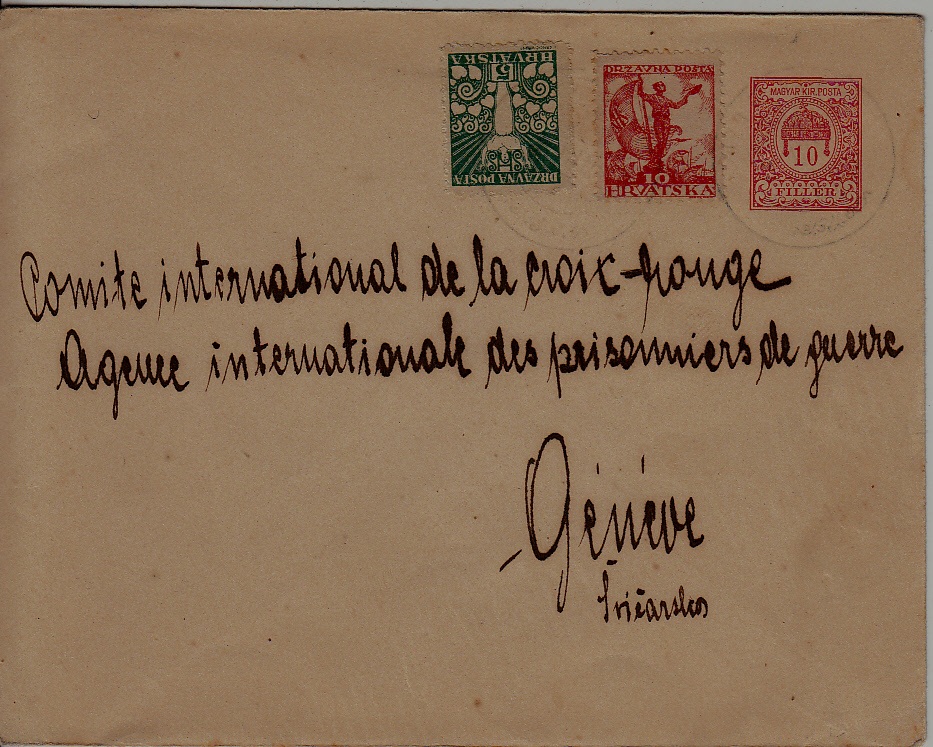 DRŽAVNA POSTA
5
HRVATSKA
DRZAVNA POSTA
10
HRVATSKA
MAGYAR KIR. POSTA
10
FILLER
Comite international de la croix-rouge
Agence internationale des prisonniers de guerre
Génève
Švičarska